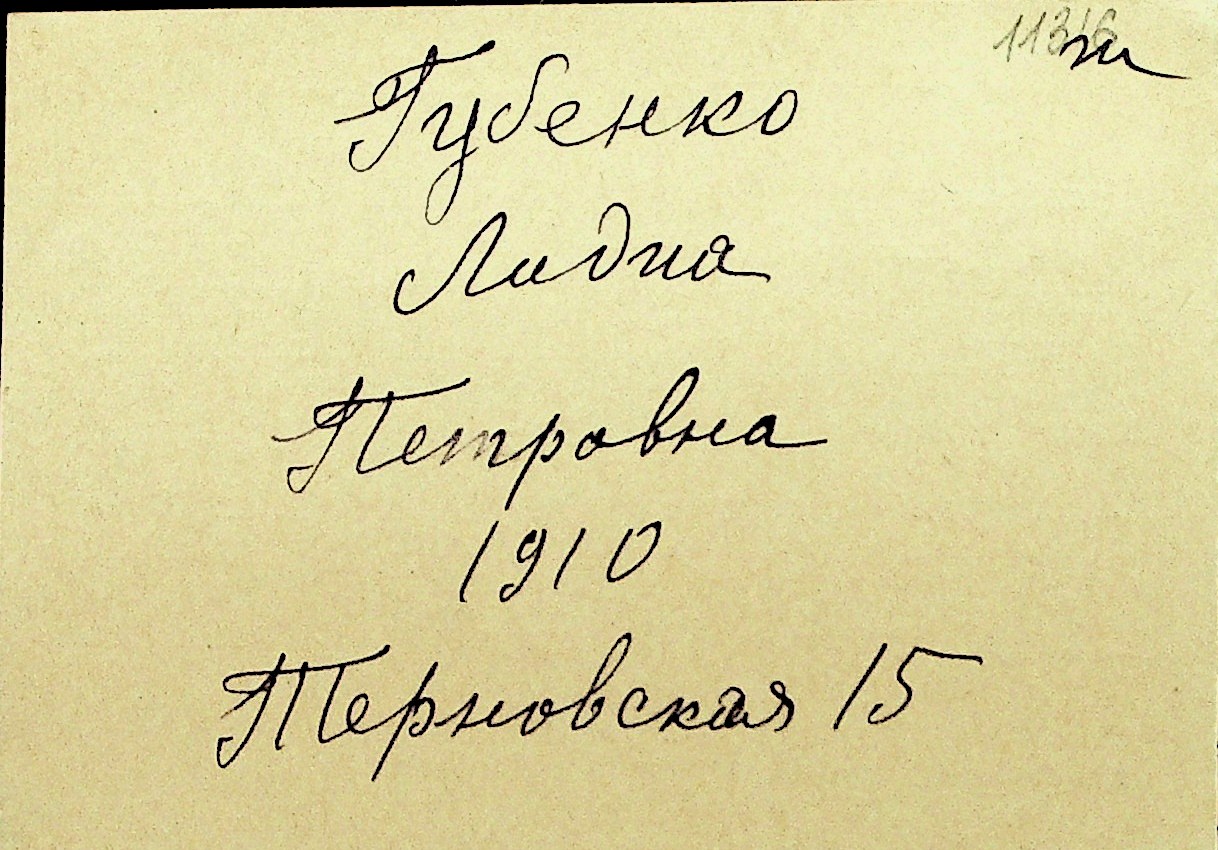 Губенко
Лидия
Петровна
1910
Терновская 15